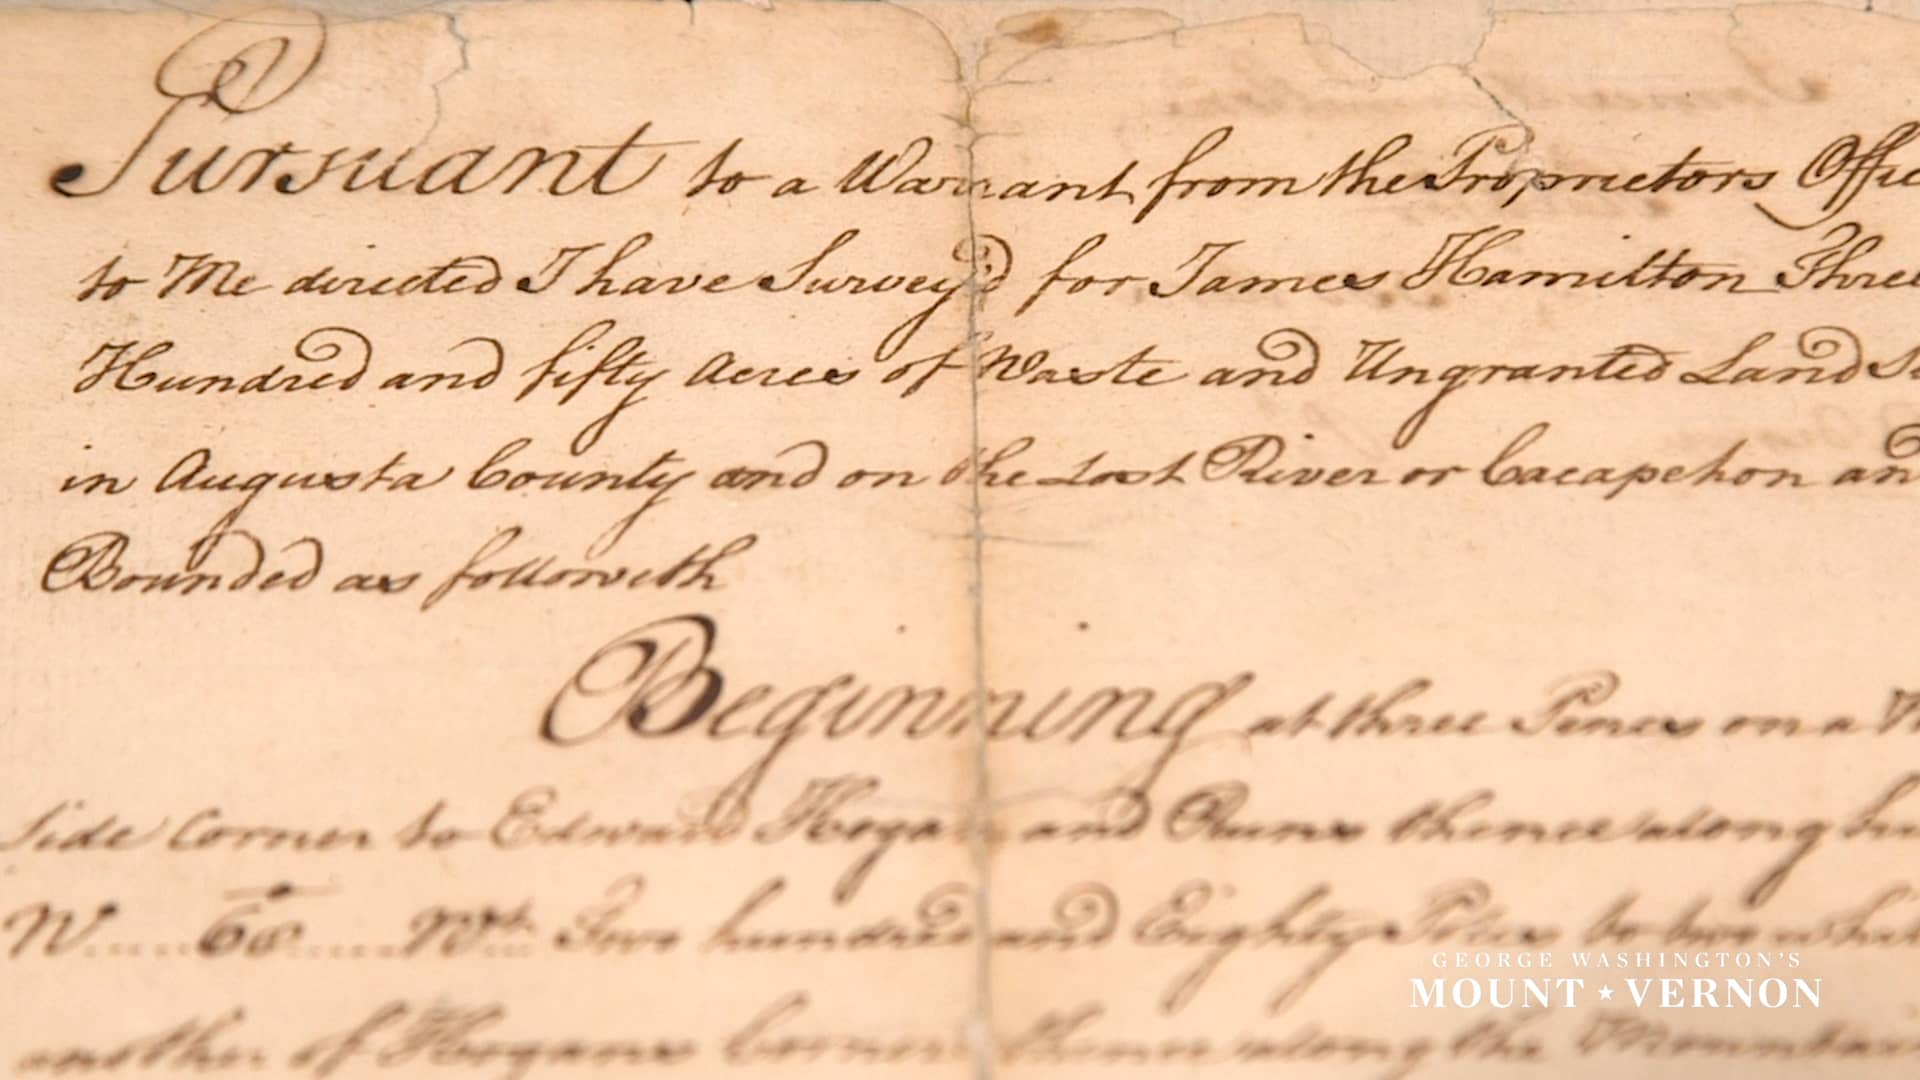 Pursuant to a Warrant from the Proprietors Offic
to Me directed I have Survey'd for James Hamilton Three
Hundred and fifty Acres of Waste and Ungranted Land
in Augusta County and on the Lost River or Cacapehon an
Bounded as followeth
Beginning at three Pines on a
side Corner to Edward Hogan and Runs thence along
N 60 Wt. Two hundred and Eighty Poles to two
another of Hogans Corner thence along the Mountain
GEORGE WASHINGTON'S
MOUNT ★ VERNON